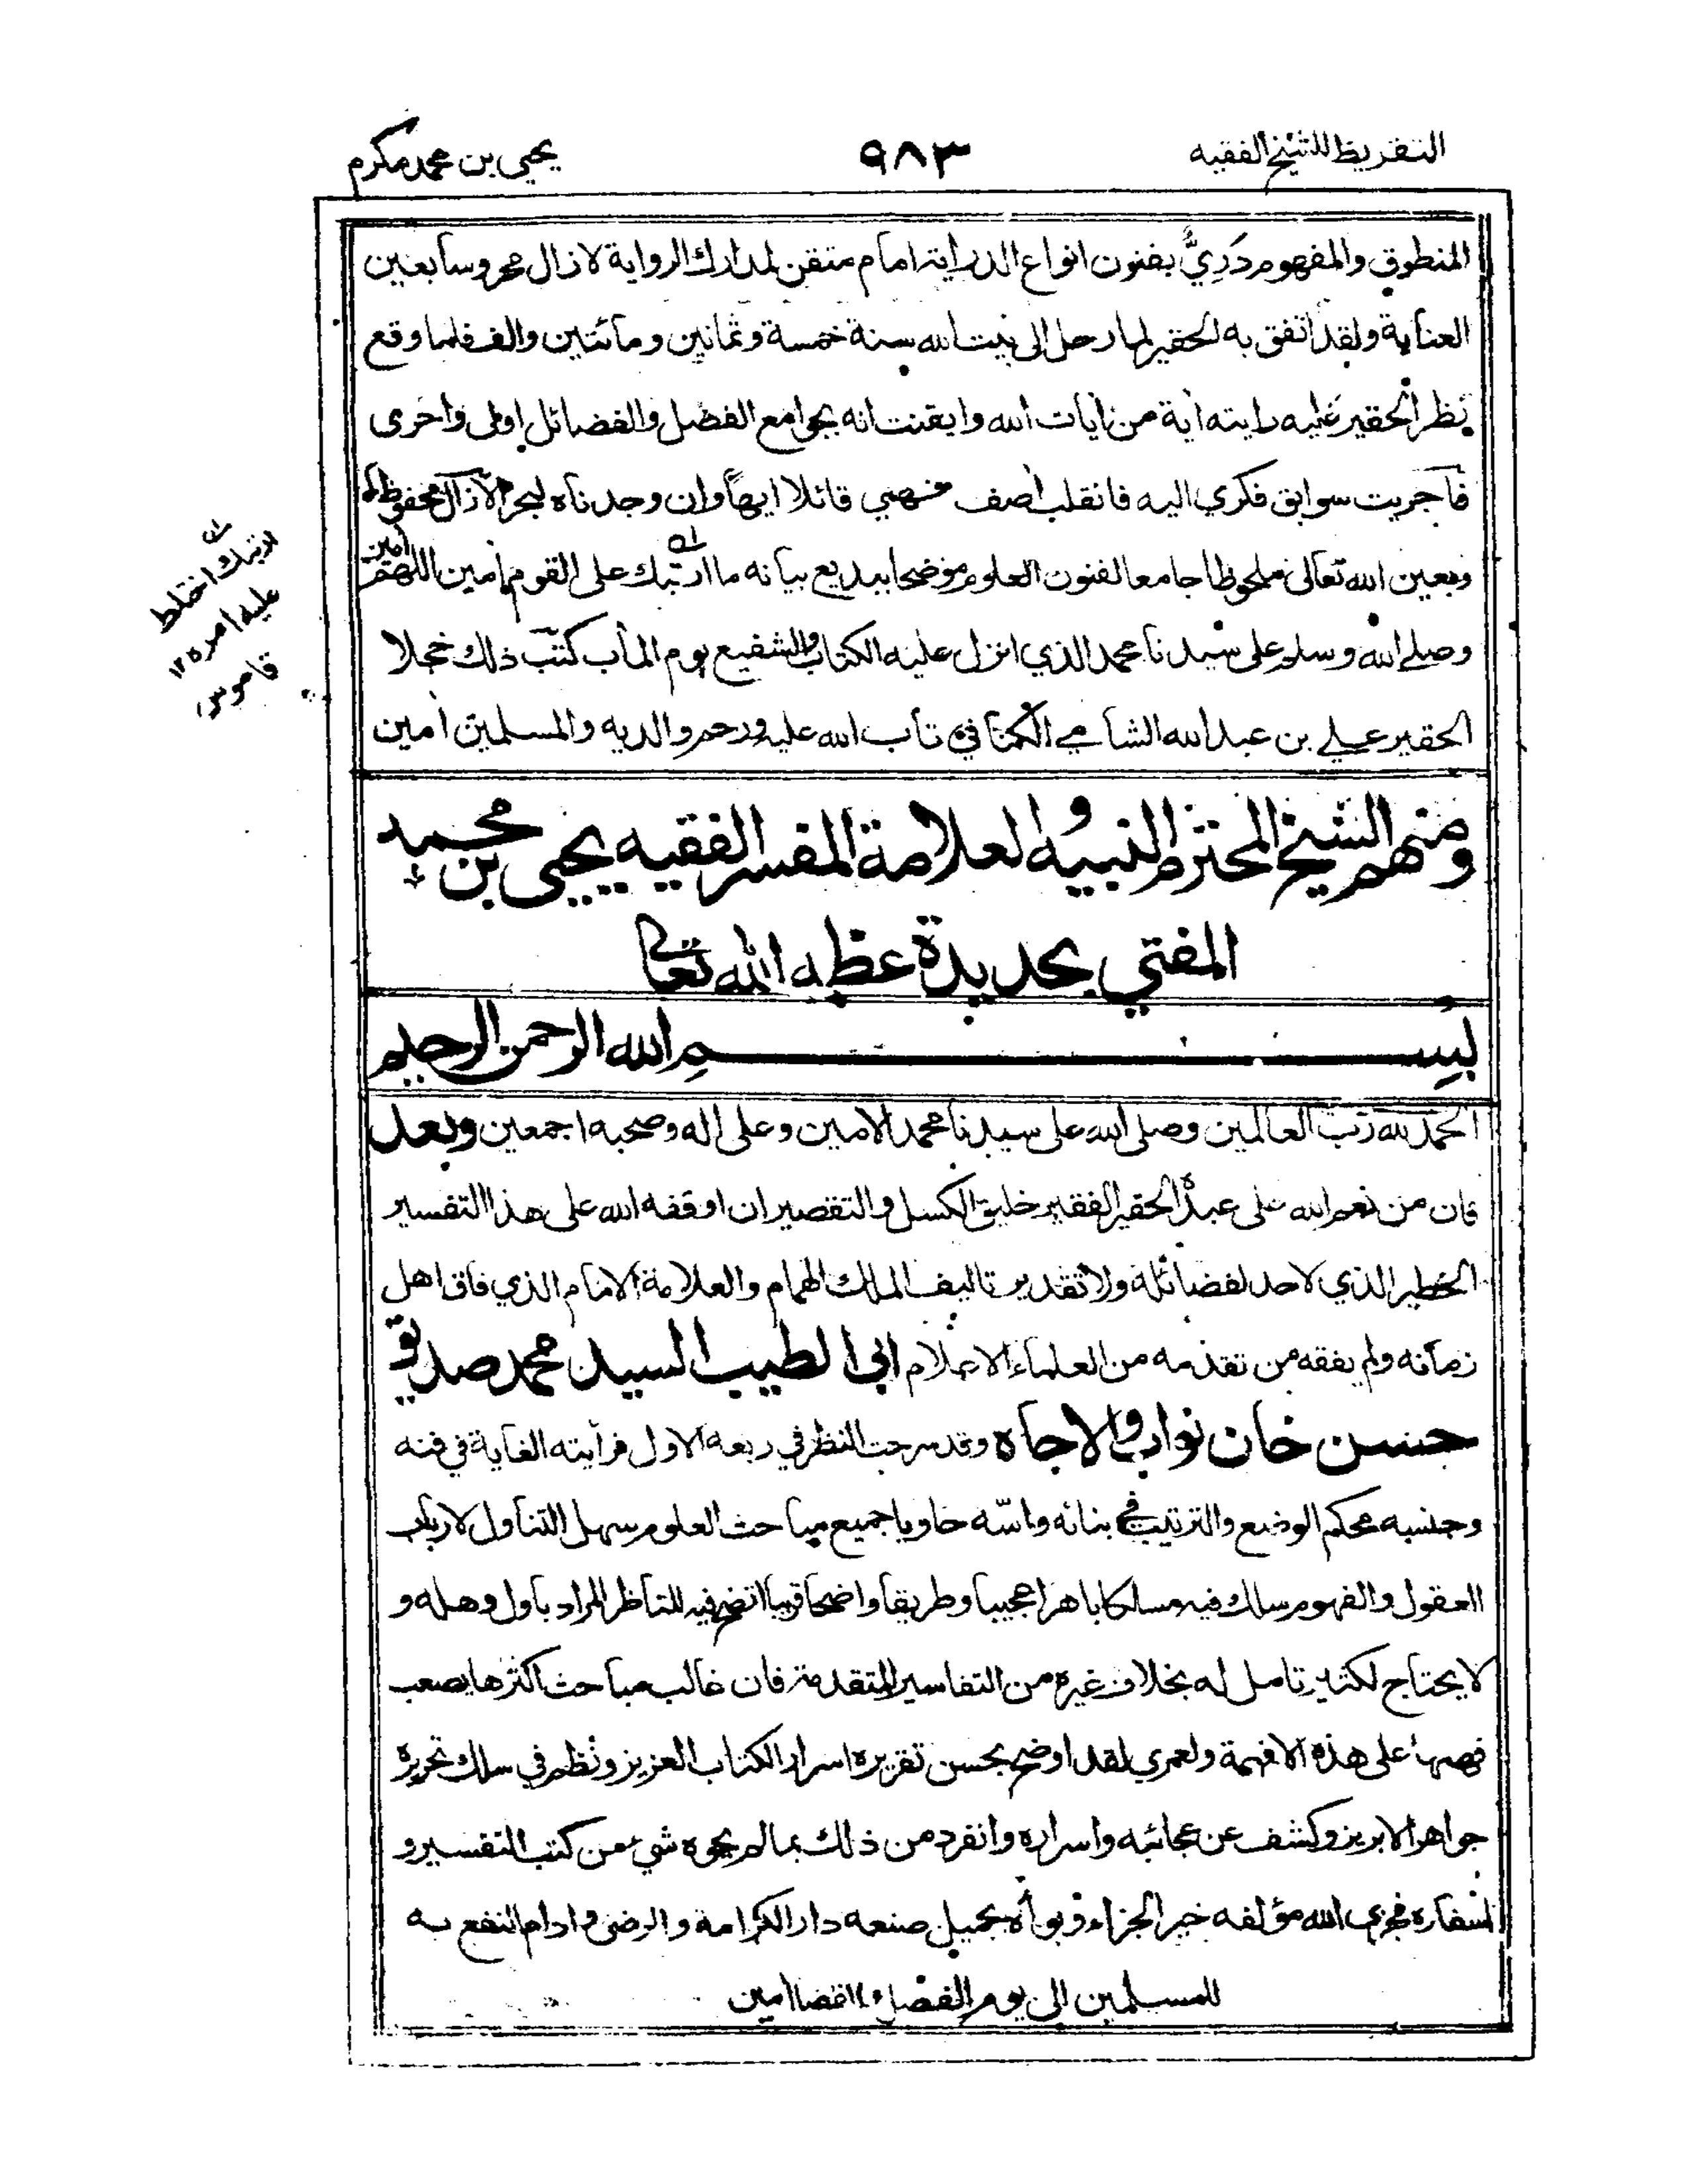 التقريظ للشيخ الفقيه
٩٨٣
يحيى بن محمد مكرم
المنطوق والمفهوم دَرِيٌّ بفنون انواع الدراية امام متقن لمدارك الرواية لازال محروسا بعين
العناية ولقد اتفق به الحقير لما رحل الى بيت الله سنة خمسة وثمانين ومائتين والف فلما وقع
نظر الحقير عليه رايته آية من آيات الله وايقنت انه بجوامع الفضل والفضائل اولى واحرى
فاجريت سوابق فكري اليه فانقلب اصف قائلا ايها وان وجدناه لبحرا لازال محفوظا
وبعين الله تعالى ملحوظا جامعا لفنون العلوم موضحا ببديع بيانه ما ارتبك على القوم امين اللهم امين
وصلى الله وسلم على سيدنا محمد الذي انزل عليه الكتاب والشفيع يوم المآب كتب ذلك خجلا
الحقير علي بن عبد الله الشامي تاب الله عليه ورحم والديه والمسلمين امين
ارتبك اختلط
عليه امره ١٢
قاموس
ومنهم الشيخ المحترم النبيه والعلامة المفسر الفقيه يحيى بن محمد
المفتي بحديدة عظمه الله تعالى
بسم الله الرحمن الرحيم
الحمد لله رب العالمين وصلى الله على سيدنا محمد الامين وعلى اله وصحبه اجمعين وبعد
فان من نعم الله على عبده الحقير الفقير خليق الكسل والتقصير ان اوقفه الله على هذا التفسير
الخطير الذي لاحد لفضائله ولا تقدير تاليف الملك الهمام والعلامة الامام الذي فاق اهل
زمانه ولم يفقه من تقدمه من العلماء الاعلام ابي الطيب السيد محمد صديق
حسن خان نواب والاجاه وقد سرحت النظر في ربعه الاول فرأيته الغاية في فنه
وجنسه محكم الوضع والترتيب في بنائه واسّه حاويا جميع مباحث العلوم سهل التناول لارباب
العقول والفهوم سلك فيه مسلكا باهرا عجيبا وطريقا واضحا قريبا اتضح فيه للناظر المراد باول وهله و
لا يحتاج لكثير تامل له بخلاف غيره من التفاسير المتقدمة فان غالب مباحث اكثرها يصعب
فهمها على هذه الافهمة ولعمري لقد اوضح بحسن تقريره اسرار الكتاب العزيز ونظم في سلك تحريره
جواهر الابريز وكشف عن عجائبه واسراره وانفرد من ذلك بمالم يحوه شيء من كتب التفسير و
اسفاره فجزى الله مؤلفه خير الجزاء وبوأه بجميل صنعه دار الكرامة والرضى وادام النفع به
للمسلمين الى يوم الفصل والقضا امين